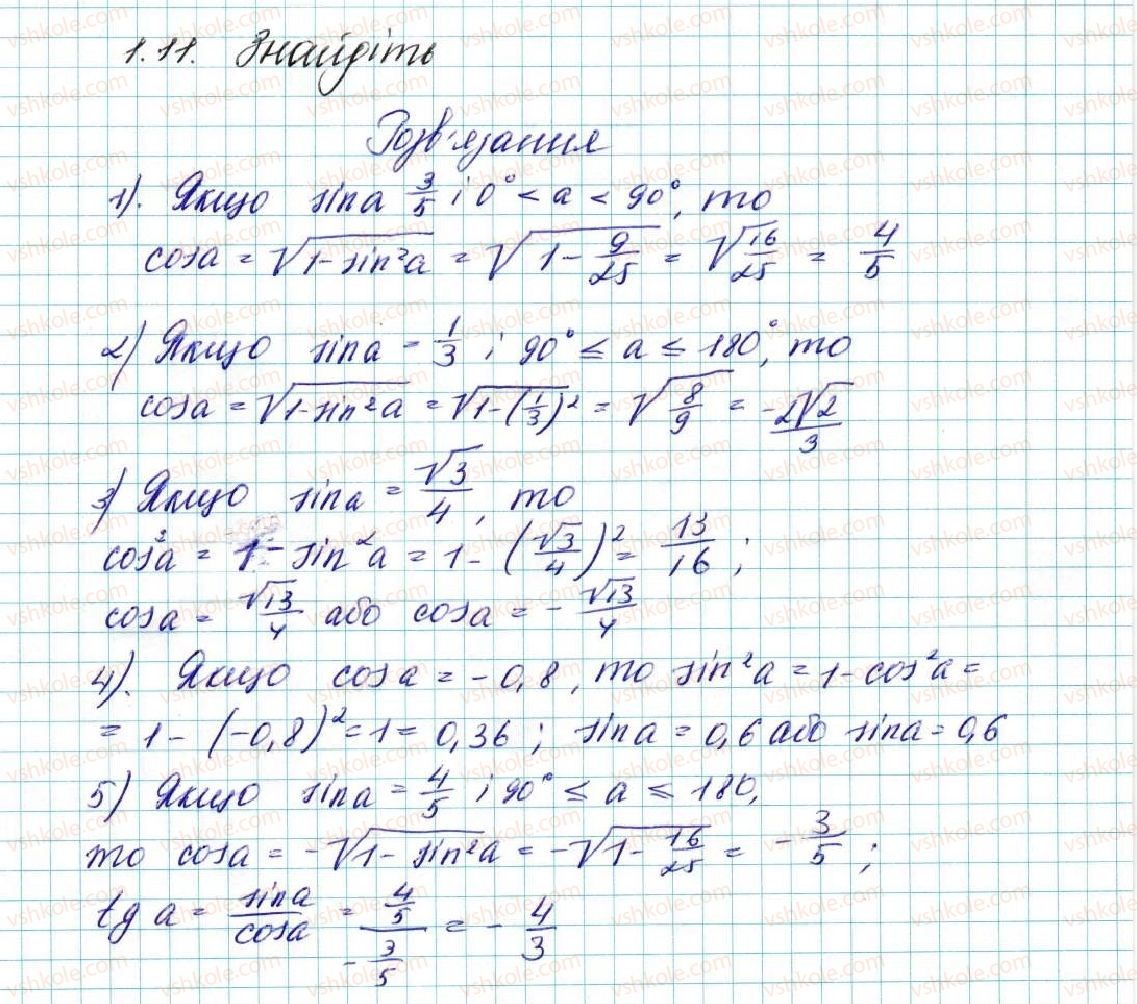 1.11. Знайдіть
Розв'язання
1). Якщо sin a 3/5 і 0° < a < 90°, то
cos a = √(1-sin²a) = √(1 - 9/25) = √(16/25) = 4/5
2) Якщо sin a = 1/3 ; 90° ≤ a ≤ 180°, то
cos a = √(1-sin²a) = √(1-(1/3)²) = √(8/9) = -2√2/3
3) Якщо sin a = √3/4, то
cos²a = 1 - sin²a = 1 - (√3/4)² = 13/16 ;
cos a = √13/4 або cos a = - √13/4
4). Якщо cos a = -0,8, то sin²a = 1 - cos²a =
= 1 - (-0,8)² = 1 = 0,36 ; sin a = 0,6 або sin a = 0,6
5) Якщо sin a = 4/5 ; 90° ≤ a ≤ 180,
то cos a = -√(1 - sin²a) = -√(1 - 16/25) = - 3/5 ;
tg a = sin a/cos a = (4/5)/(-3/5) = - 4/3